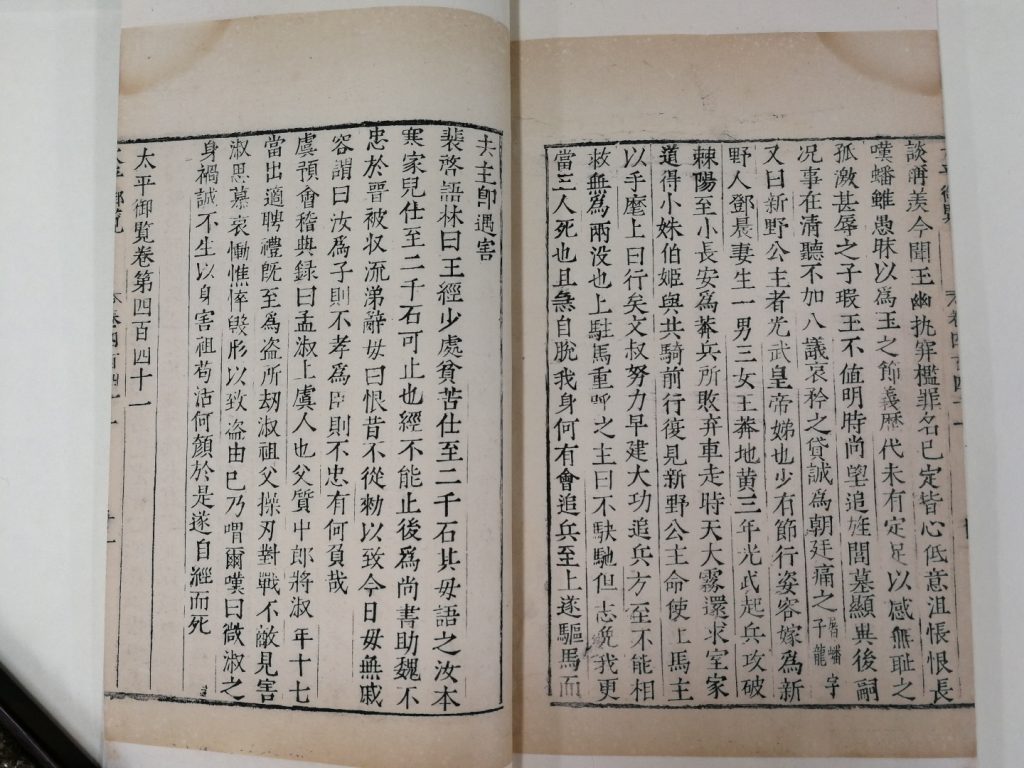 談稱羨今聞王幽執穽檻罪名已定皆心低意沮悵恨長
嘆蟠雖愚昧以為王之節義歷代未有定足以感無恥之
孤激甚辱之子瑕王不值明時尚望追旌閭墓顯異後嗣
况事在清聽不加八議哀矜之貸誠為朝廷痛之屠蟠字子龍
又曰新野公主者光武皇帝娣也少有節行姿容嫁為新
野人鄧晨妻生一男三女王莽地黃三年光武起兵攻破
棘陽至小長安為莽兵所敗弃車走時天大霧還求室家
道得小姝伯姬與共騎前行復見新野公主命使上馬主
以手麾上曰行矣文叔努力早建大功追兵方至不能相
救無為兩没也上駐馬重呼之主曰不駃馳但志㝃我更
當三人死也且急自脫我身何有會追兵至上遂驅馬而
夫主即遇害
裴啓語林曰王經少處貧苦仕至二千石其母語之汝本
寒家兒仕至二千石可止也經不能止後為尚書助魏不
忠於晋被収流涕辭母曰恨昔不從勑以致今日母無戚
容謂曰汝為子則不孝為臣則不忠有何負哉
虞預會稽典録曰孟淑上虞人也父質中郎將淑年十七
當出適聘禮既至為盗所刼淑祖父操刃對戰不敵見害
淑思慕哀慟憔悴毁形以致盗由已乃喟爾嘆曰微淑之
身禍誠不生以身害祖苟活何顔於是遂自經而死
太平御覧卷第四百四十一